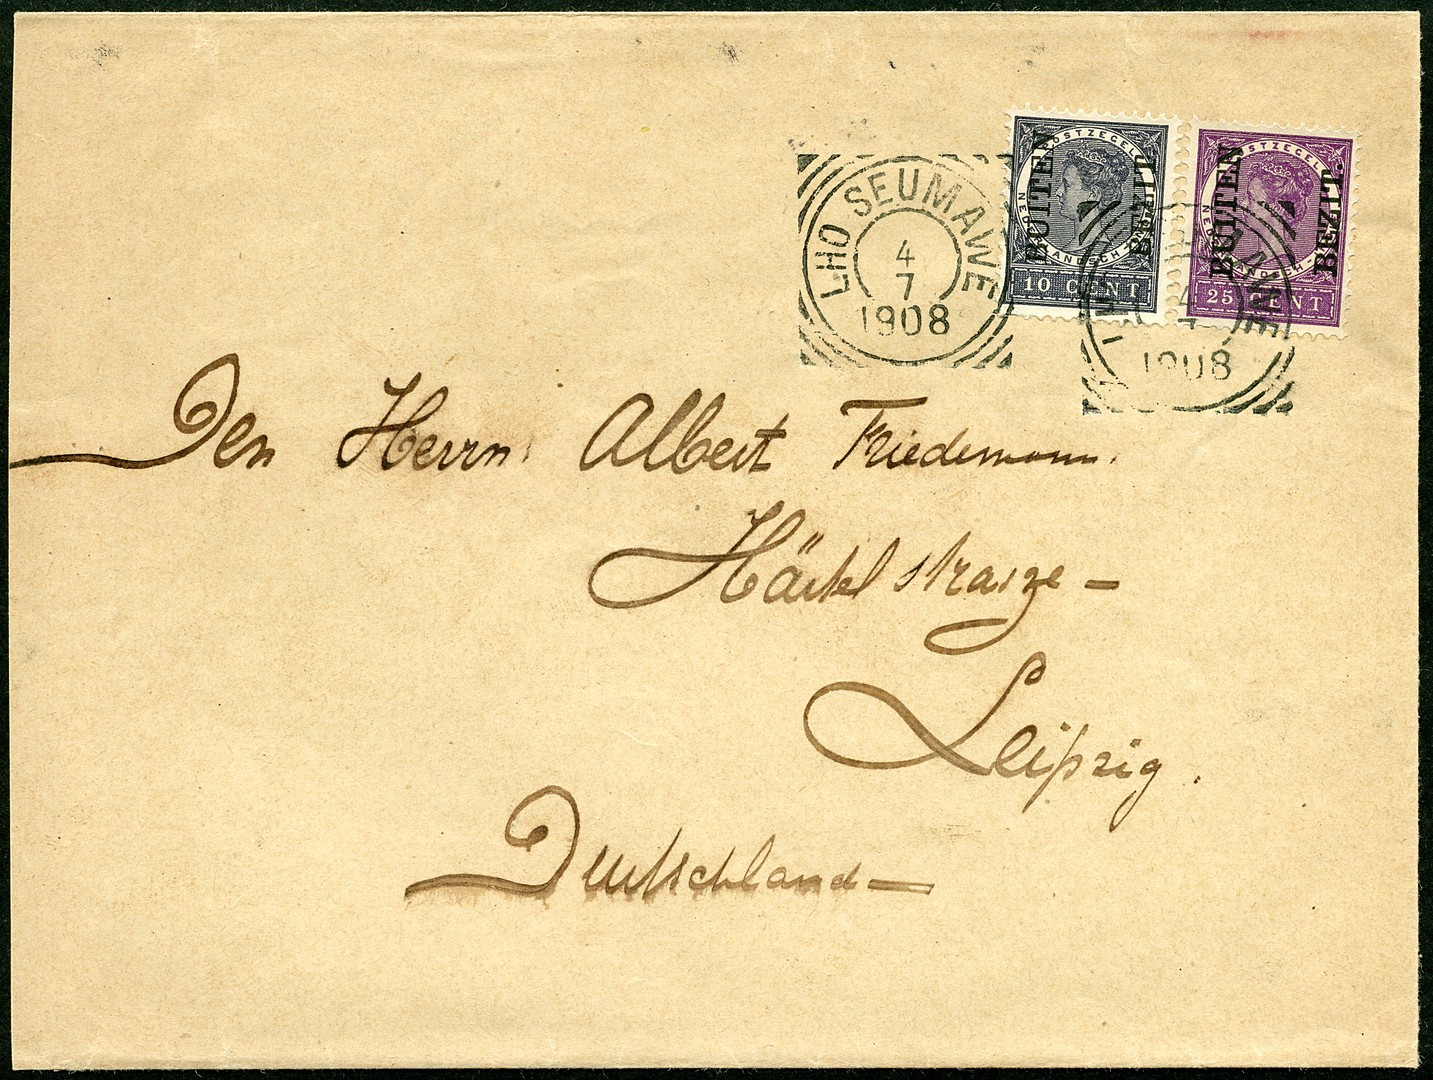 LHO SEUMAWE
4
7
1908
POSTZEGEL
BUITEN BEZIT.
10 CENT
POSTZEGEL
BUITEN BEZIT.
25 CENT
4
7
1908
Den Herrn Albert Friedemann.
Härtelstrasze –
Leipzig.
Deutschland –